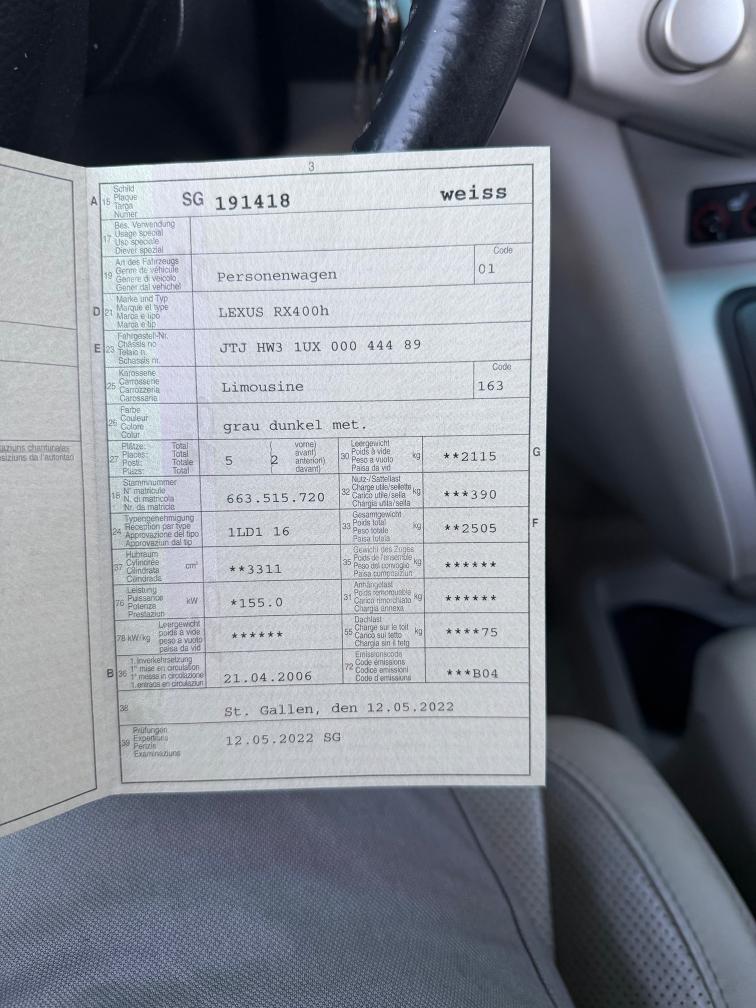 3
A 15 Schild
Plaque
Targa
Numer
SG 191418 weiss
17 Bes. Verwendung
Usage spécial
Uso speciale
Diever spezial
19 Art des Fahrzeugs
Genre de véhicule
Genere di veicolo
Gener dal vehichel
Personenwagen
Code
01
D 21 Marke und Typ
Marque et type
Marca e tipo
Marca e tip
LEXUS RX400h
E 23 Fahrgestell-Nr.
Châssis no
Telaio n.
Schassis nr.
JTJ HW3 1UX 000 444 89
25 Karosserie
Carrosserie
Carrozzeria
Carossaria
Limousine
Code
163
26 Farbe
Couleur
Colore
Colur
grau dunkel met.
27 Plätze: Total
Places: Total
Posti: Totale
Plazs: Total
5 ( 2 vorne)
avant)
anteriori)
davant)
30 Leergewicht
Poids à vide
Peso a vuoto
Paisa da vid
kg
**2115
G
18 Stammnummer
N° matricule
N. di matricola
Nr. da matricla
663.515.720
32 Nutz-/Sattellast
Charge utile/sellette
Carico utile/sella
Chargia utila/sella
kg
***390
24 Typengenehmigung
Réception par type
Approvazione del tipo
Approvaziun dal tip
1LD1 16
33 Gesamtgewicht
Poids total
Peso totale
Paisa totala
kg
**2505
F
37 Hubraum
Cylindrée
Cilindrata
Cilindrada
cm³
**3311
35 Gewicht des Zuges
Poids de l'ensemble
Peso del convoglio
Paisa cumposiziun
kg
******
76 Leistung
Puissance
Potenza
Prestaziun
kW
*155.0
31 Anhängelast
Poids remorquable
Carico rimorchiato
Chargia annexa
kg
******
78 kW/kg Leergewicht
poids à vide
peso a vuoto
paisa da vid
******
55 Dachlast
Charge sur le toit
Carico sul tetto
Chargia sin il tetg
kg
****75
B 36 1. Inverkehrsetzung
1re mise en circulation
1a messa in circolazione
1. entrada en circulaziun
21.04.2006
72 Emissionscode
Code émissions
Codice emissioni
Code d'emissiuns
***B04
38
St. Gallen, den 12.05.2022
39 Prüfungen
Expertises
Perizie
Examinaziuns
12.05.2022 SG